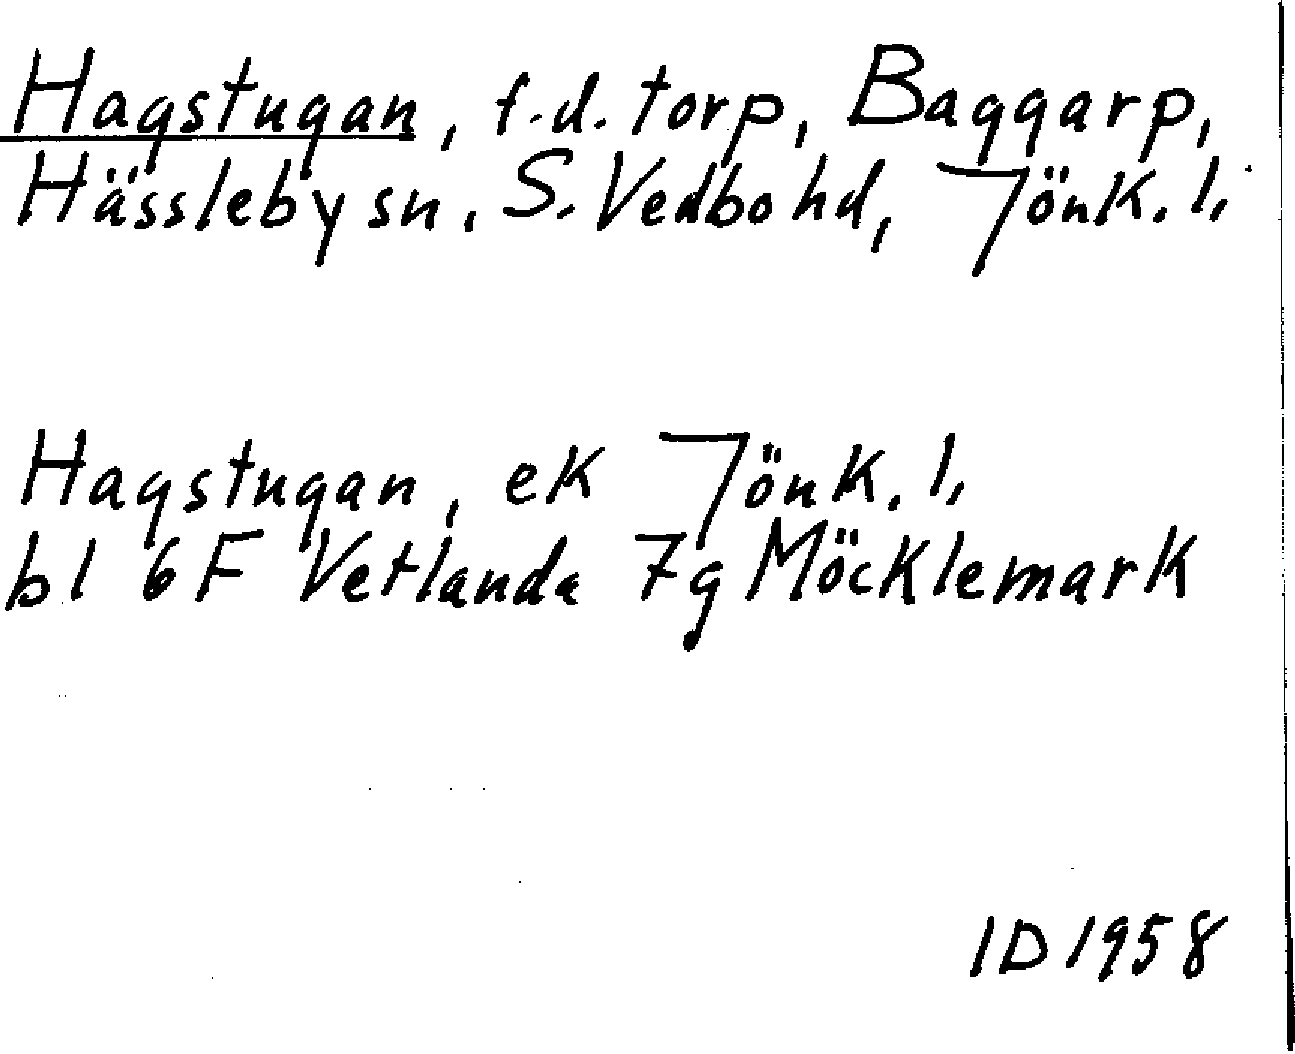 Hagstugan, f.d. torp, Baggarp,
Hässleby sn, S. Vedbo hd, Jönk. l,
Hagstugan, ek Jönk. l,
bl 6F Vetlanda 7g Möcklemark
ID 1958